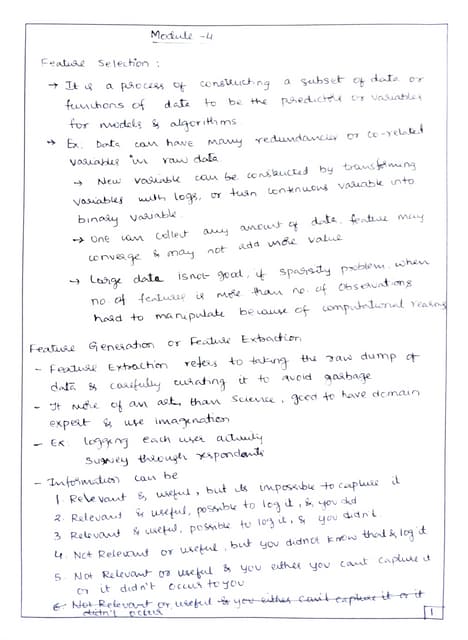 Module -4
Feature Selection :
→ It is a process of constructing a subset of data or
functions of data to be the predictors or variables
for models & algorithms.
→ Ex. Data can have many redundancies or co-related
variables in raw data
→ New variable can be constucted by transforming
variables with logs, or turn continuous variable into
binary variable.
→ One can collect any amount of data. feature may
converge & may not add more value
→ Large data is not good, if sparsity problem. when
no of features is more than no. of observations
hard to manipulate because of computational reasons
Feature Generation or Feature Extraction
- Feature Extraction refers to taking the raw dump of
data & carefully curating it to avoid garbage
- It more of an art, than science, good to have domain
expert & use imagenation
- Ex. logging each user activity
Survey through respondents
- Information can be
1. Relevant & useful, but its impossible to capture it
2. Relevant & useful, possible to log it, & you did
3. Relevant & useful, possible to log it, & you didn't.
4. Not Relevant or useful, but you didnot know that & log'd
5. Not Relevant or useful & you either you can't capture it
or it didn't occur to you
6. Not Relevant or useful & you either can't capture it or it
didn't occur
1